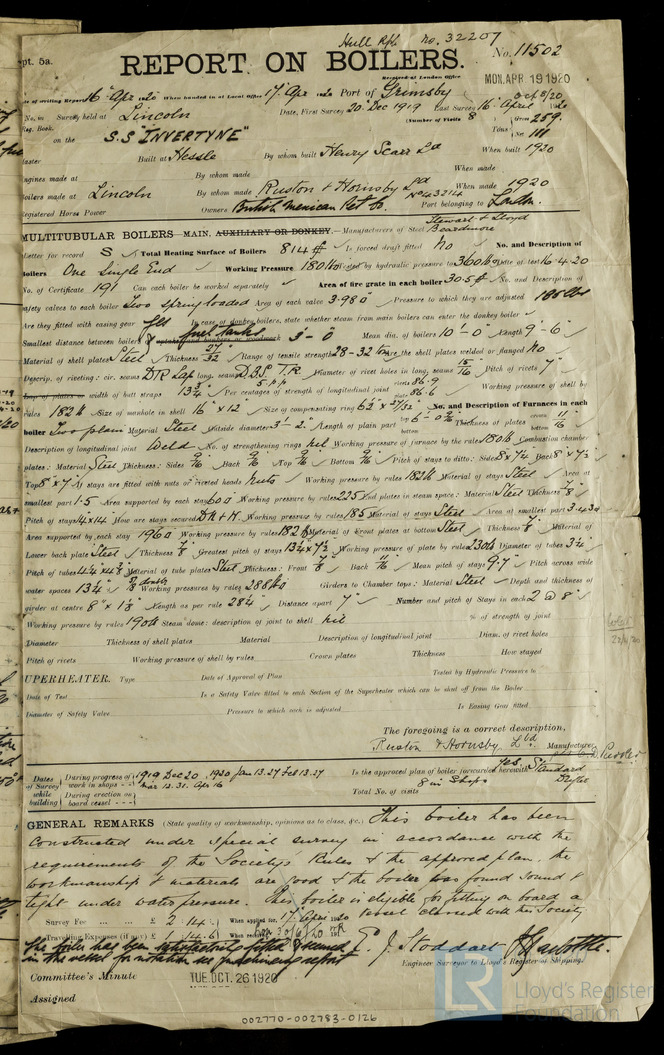 Hull Rpt. No. 32207
pt. 5a.
REPORT ON BOILERS.
No. 11502
Received at London Office
MON. APR 19 1920
Date of writing Report 16th Apr 1920 When handed in at Local Office 17th Apr 1920 Port of Grimsby
No. in Survey held at Lincoln Date, First Survey 20 Dec 1919 Last Survey 16th April 1920
Reg. Book. (Number of Visits 8) Gross 259
on the S.S "INVERTYNE" Tons Net 111
Master Built at Hessle By whom built Henry Scarr Ld When built 1920
Engines made at By whom made When made
Boilers made at Lincoln By whom made Ruston & Hornsby Ld No 43214 When made 1920
Registered Horse Power Owners British Mexican Pet Co. Port belonging to London
MULTITUBULAR BOILERS MAIN, AUXILIARY OR DONKEY.—Manufacturers of Steel Stewart & Lloyd Beardmore
Letter for record S Total Heating Surface of Boilers 814 ft Is forced draft fitted No No. and Description of
Boilers One Single End Working Pressure 180 lb Tested by hydraulic pressure to 360 lb Date of test 16.4.20
No. of Certificate 191 Can each boiler be worked separately Area of fire grate in each boiler 30.5 ft No. and Description of
safety valves to each boiler Two spring loaded Area of each valve 3.98 Pressure to which they are adjusted 185 lbs
Are they fitted with easing gear yes In case of donkey boilers, state whether steam from main boilers can enter the donkey boiler
Smallest distance between boilers or uptakes and bunkers or woodwork fuel tanks 3'-0" Mean dia. of boilers 10'-0" Length 9'-6"
Material of shell plates Steel Thickness 27/32 Range of tensile strength 28-32 tons Are the shell plates welded or flanged No
Descrip. of riveting: cir. seams D.R Lap long. seams D.B.S. T.R. Diameter of rivet holes in long. seams 15/16 Pitch of rivets 7"
Lap of plates or width of butt straps 13 3/4 Per centages of strength of longitudinal joint rivets 86.9 plate 86.6 Working pressure of shell by
rules 182 lb Size of manhole in shell 16" x 12" Size of compensating ring 6 1/2 x 27/32 No. and Description of Furnaces in each
boiler Two plain Material Steel Outside diameter 3'-2" Length of plain part Thickness of plates crown 11/16 bottom
Description of longitudinal joint Weld No. of strengthening rings nil Working pressure of furnace by the rules 180 lb Combustion chamber
plates: Material Steel Thickness: Sides 9/16 Back 9/16 Top 9/16 Bottom 9/16 Pitch of stays to ditto: Sides 8 x 7 1/4 Back 8 x 7 1/2
Top 8 x 7 If stays are fitted with nuts or riveted heads Nuts Working pressure by rules 182 lb Material of stays Steel Area at
smallest part 1.5 Area supported by each stay 60 Working pressure by rules 225 End plates in steam space: Material Steel Thickness 7/8
Pitch of stays 14 x 14 How are stays secured D.N + W. Working pressure by rules 185 Material of stays Steel Area at smallest part 3.434
Area supported by each stay 196 Working pressure by rules 182 lb Material of Front plates at bottom Steel Thickness 7/8 Material of
Lower back plate Steel Thickness 7/8 Greatest pitch of stays 13 1/4 x 7 1/2 Working pressure of plate by rules 230 lb Diameter of tubes 3 1/4
Pitch of tubes 4 1/4 x 4 3/8 Material of tube plates Steel Thickness: Front 7/8 Back 11/16 Mean pitch of stays 9.7 Pitch across wide
water spaces 13 1/4 Working pressures by rules 288 lb Girders to Chamber tops: Material Steel Depth and thickness of
girder at centre 8" x 1 1/8 Length as per rule 28 1/4 Distance apart 7" Number and pitch of Stays in each 2 @ 8"
Working pressure by rules 190 lb Steam dome: description of joint to shell nil % of strength of joint
Diameter Thickness of shell plates Material Description of longitudinal joint Diam. of rivet holes
Pitch of rivets Working pressure of shell by rules Crown plates Thickness How stayed
SUPERHEATER. Type Date of Approval of Plan Tested by Hydraulic Pressure to
Date of Test Is a Safety Valve fitted to each Section of the Superheater which can be shut off from the Boiler
Diameter of Safety Valve Pressure to which each is adjusted Is Easing Gear fitted
The foregoing is a correct description,
Ruston & Hornsby Ltd Manufacturer.
Dates of Survey while building During progress of work in shops - - 1919 Dec 20, 1920 Jan 13.27 Feb 13.27 Mar 12.31. Apr 16 Is the approved plan of boiler forwarded herewith Yes, Standard
During erection on board vessel - - - Total No. of visits 8 in shops
GENERAL REMARKS (State quality of workmanship, opinions as to class, &c.) This boiler has been
constructed under special survey in accordance with the
requirements of the Society's Rules & the approved plan, the
workmanship & materials are good & the boiler was found sound &
tight under water pressure. This boiler is eligible for fitting on board a
vessel classed with this Society
Survey Fee ... ... £ 2 : 14 : When applied for, 17th April 1920
Travelling Expenses (if any) £ 1 : 14 : 6 When received, 30/6/20
This boiler has been satisfactorily fitted & secured
in the vessel for notation see machinery report
E. J. Stoddart
Engineer Surveyor to Lloyd's Register of Shipping.
Committee's Minute TUE. OCT. 26 1920
Assigned
002770-002783-0126
LR Lloyd's Register
Foundation